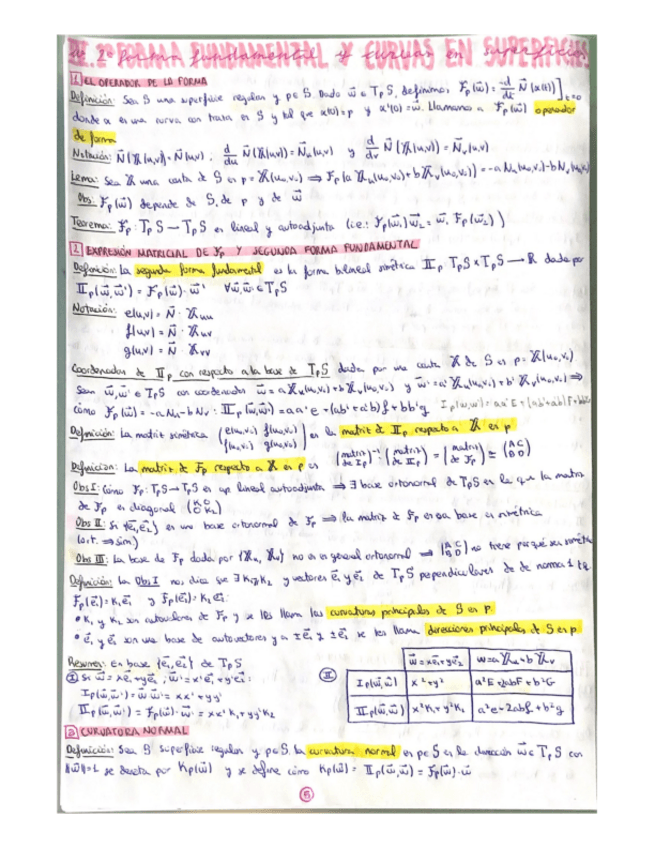 IV. 2ª FORMA FUNDAMENTAL Y CURVAS EN SUPERFICIES
1 EL OPERADOR DE LA FORMA
Definición: Sea S una superficie regular y p∈S. Dado w⃗ ∈ TpS, definimos Fp(w⃗) = -d/dt N⃗(α(t))]t=0
donde α es una curva con traza en S y tal que α(0)=p y α'(0)=w⃗. Llamamos a Fp(w⃗) operador
de forma
Notación: N⃗(X(u,v))=N⃗(u,v) ; d/du N⃗(X(u,v))=N⃗u(u,v) y d/dv N⃗(X(u,v))=N⃗v(u,v)
Lema: Sea X una carta de S en p=X(u₀,v₀) ⟹ Fp(a Xu(u₀,v₀)+bXv(u₀,v₀))=-aNu(u₀,v₀)-bNv(u₀,v₀)
Obs: Fp(w⃗) depende de S, de p y de w⃗
Teorema: Fp: TpS → TpS es lineal y autoadjunta (i.e.: Fp(w⃗₁)w⃗₂ = w⃗₁ Fp(w⃗₂))
2 EXPRESIÓN MATRICIAL DE Fp Y SEGUNDA FORMA FUNDAMENTAL
Definición: La segunda forma fundamental es la forma bilineal simétrica IIp: TpS×TpS → R dada por
IIp(w⃗,w⃗') = Fp(w⃗)·w⃗' ∀w⃗,w⃗'∈TpS
Notación: e(u,v) = N⃗ · Xuu
f(u,v) = N⃗ · Xuv
g(u,v) = N⃗ · Xvv
Coordenadas de IIp con respecto a la base de TpS dada por una carta X de S en p=X(u₀,v₀)
Sean w⃗,w⃗' ∈ TpS con coordenadas w⃗ = aXu(u₀,v₀)+bXv(u₀,v₀) y w⃗'=a'Xu(u₀,v₀)+b'Xv(u₀,v₀) ⟹
cómo Fp(w⃗) = -aNu-bNv : IIp(w⃗,w⃗')=aa'e+(ab'+a'b)f+bb'g Ip(w,w')=aa'E+(ab'+a'b)F+bb'G
Definición: La matriz simétrica (e(u₀,v₀) f(u₀,v₀) / f(u₀,v₀) g(u₀,v₀)) es la matriz de IIp respecto a X en p
Definición: La matriz de Fp respecto a X en p es (matriz de Ip)⁻¹ (matriz de IIp) = (matriz de Fp) = (A C / B D)
Obs I: Cómo Fp: TpS→TpS es ap. lineal autoadjunta ⟹ ∃ base ortonormal de TpS en la que la matriz
de Fp es diagonal (K₁ 0 / 0 K₂)
Obs II: Si {e⃗₁,e⃗₂} es una base ortonormal de Fp ⟹ la matriz de Fp en esa base es simétrica
(ort. ⟹ sim)
Obs III: La base de Fp dada por {Xu, Xv} no es en general ortonormal ⟹ (A C / B D) no tiene porqué ser simétrica
Definición: La Obs I nos dice que ∃K₁,K₂ y vectores e⃗₁ y e⃗₂ de TpS perpendiculares de norma 1 tq
Fp(e⃗₁)=K₁e⃗₁ y Fp(e⃗₂)=K₂e⃗₂.
• K₁ y K₂ son autovalores de Fp y se les llama las curvaturas principales de S en p
• e⃗₁ y e⃗₂ son una base de autovectores y a ±e⃗₁ y ±e⃗₂ se les llama direcciones principales de S en p
Resumen: En base {e⃗₁,e⃗₂} de TpS
I Si w⃗ = xe⃗₁+ye⃗₂ ; w⃗'=x'e⃗₁+y'e⃗₂:
Ip(w⃗,w⃗')= w⃗ w⃗' = xx'+yy'
IIp(w⃗,w⃗') = Fp(w⃗)·w⃗' = xx'K₁+yy'K₂
II w⃗=xe⃗₁+ye⃗₂ w=aXu+bXv
Ip(w⃗,w⃗) x²+y² a²E+2abF+b²G
IIp(w⃗,w⃗) x²K₁+y²K₂ a²e+2abf+b²g
3 CURVATURA NORMAL
Definición: Sea S superficie regular y p∈S. La curvatura normal en p∈S en la dirección w⃗∈TpS con
‖w⃗‖=1 se denota por Kp(w⃗) y se define cómo Kp(w⃗) = IIp(w⃗,w⃗) = Fp(w⃗)·w⃗
5